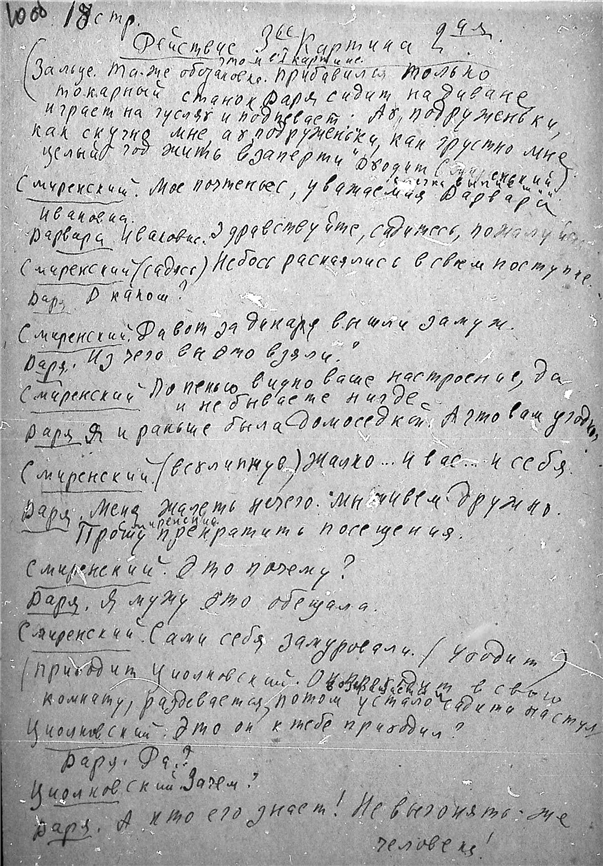 18 стр.
Действие 3ье Картина 2ая.
(Зальце. Та-же обстановка. Прибавился только
токарный станок Варя сидит на диване
играет на гуслях и подпевает: Ах, подруженьки,
как скучно мне ах подруженьки, как грустно мне
целый год жить взаперти Входит Смиренский)
Смиренский. Мое почтенье, уважаемая Варвара
Ивановна.
Варвара Ивановна. Здравствуйте, садитесь, пожалуйста
Смиренский (садясь) Небось раскаялись в своем поступке.
Варя. В каком?
Смиренский. Да вот за дикаря вышли замуж.
Варя. Из чего вы это взяли?
Смиренский По пенью видно ваше настроение, да
и не бываете нигде
Варя Я и раньше была домоседкой. А что вам угодно
Смиренский. (всхлипнув) Жалко... и вас... и себя.
Варя. Меня жалеть нечего. Мы живем дружно.
Прошу прекратить посещения.
Смиренский. Это почему?
Варя. Я мужу это обещала.
Смиренский. Сами себя замуровали. (Уходит)
(Приходит Циолковский. Он проходит в свою
комнату, раздевается, потом устало садится на стул
Циолковский. Это он к тебе приходил?
Варя. Да.
Циолковский Зачем?
Варя. А кто его знает! Не выгонять-же
человека!